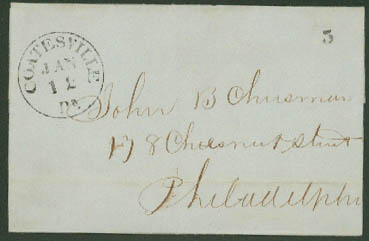 5
COATESVILLE
JAN
12
Pa.
John B Chrisman
178 Chesnut street
Philadelphi